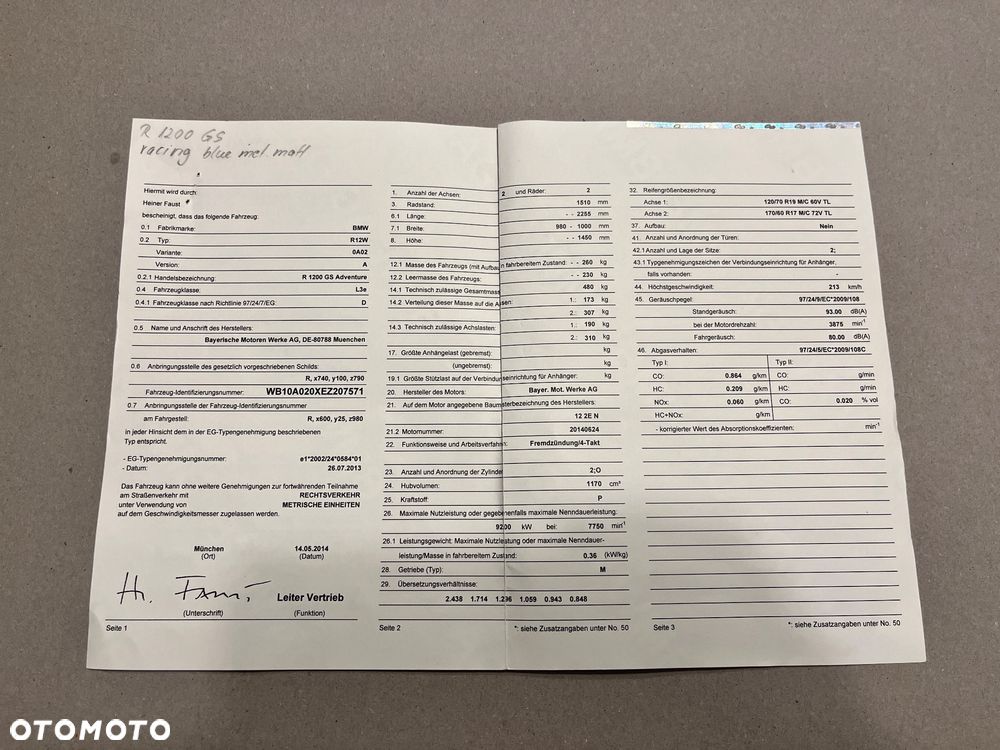 R 1200 GS
racing blue met. matt
Hiermit wird durch:
Heiner Faust
bescheinigt, dass das folgende Fahrzeug:
0.1 Fabrikmarke: BMW
0.2 Typ: R12W
Variante: 0A02
Version: A
0.2.1 Handelsbezeichnung: R 1200 GS Adventure
0.4 Fahrzeugklasse: L3e
0.4.1 Fahrzeugklasse nach Richtlinie 97/24/7/EG: D
0.5 Name und Anschrift des Herstellers:
Bayerische Motoren Werke AG, DE-80788 Muenchen
0.6 Anbringungsstelle des gesetzlich vorgeschriebenen Schilds:
R, x740, y100, z790
Fahrzeug-Identifizierungsnummer: WB10A020XEZ207571
0.7 Anbringungsstelle der Fahrzeug-Identifizierungsnummer
am Fahrgestell: R, x600, y25, z980
in jeder Hinsicht dem in der EG-Typengenehmigung beschriebenen
Typ entspricht.
- EG-Typengenehmigungsnummer: e1*2002/24*0584*01
- Datum: 26.07.2013
Das Fahrzeug kann ohne weitere Genehmigungen zur fortwährenden Teilnahme
am Straßenverkehr mit RECHTSVERKEHR
unter Verwendung von METRISCHE EINHEITEN
auf dem Geschwindigkeitsmesser zugelassen werden.
München 14.05.2014
(Ort) (Datum)
Leiter Vertrieb
(Unterschrift) (Funktion)
Seite 1
1. Anzahl der Achsen: 2 und Räder: 2
3. Radstand: 1510 mm
6.1 Länge: - - 2255 mm
7.1 Breite: 980 - 1000 mm
8. Höhe: - - 1450 mm
12.1 Masse des Fahrzeugs (mit Aufbau in fahrbereitem Zustand: - - 260 kg
12.2 Leermasse des Fahrzeugs: - - 230 kg
14.1 Technisch zulässige Gesamtmass 480 kg
14.2 Verteilung dieser Masse auf die A sen: 1.: 173 kg
2.: 307 kg
14.3 Technisch zulässige Achslasten: 1.: 190 kg
2.: 310 kg
17. Größte Anhängelast (gebremst): kg
(ungebremst): kg
19.1 Größte Stützlast auf der Verbindun seinrichtung für Anhänger: kg
20. Hersteller des Motors: Bayer. Mot. Werke AG
21. Auf dem Motor angegebene Baumusterbezeichnung des Herstellers:
12 2E N
21.2 Motornummer: 20140624
22. Funktionsweise und Arbeitsverfahrn: Fremdzündung/4-Takt
23. Anzahl und Anordnung der Zylinde 2;O
24. Hubvolumen: 1170 cm³
25. Kraftstoff: P
26. Maximale Nutzleistung oder gegebenenfalls maximale Nenndauerleistung:
9200 kW bei: 7750 min⁻¹
26.1 Leistungsgewicht: Maximale Nutzleistung oder maximale Nenndauer-
leistung/Masse in fahrbereitem Zustand: 0.36 (kW/kg)
28. Getriebe (Typ): M
29. Übersetzungsverhältnisse:
2.438 1.714 1.296 1.059 0.943 0.848
Seite 2 *: siehe Zusatzangaben unter No. 50
32. Reifengrößenbezeichnung:
Achse 1: 120/70 R19 M/C 60V TL
Achse 2: 170/60 R17 M/C 72V TL
37. Aufbau: Nein
41. Anzahl und Anordnung der Türen:
42.1 Anzahl und Lage der Sitze: 2;
43.1 Typgenehmigungszeichen der Verbindungseinrichtung für Anhänger,
falls vorhanden: -
44. Höchstgeschwindigkeit: 213 km/h
45. Geräuschpegel: 97/24/9/EC*2009/108
Standgeräusch: 93.00 dB(A)
bei der Motordrehzahl: 3875 min⁻¹
Fahrgeräusch: 80.00 dB(A)
46. Abgasverhalten: 97/24/5/EC*2009/108C
Typ I: Typ II:
CO: 0.864 g/km CO: g/min
HC: 0.209 g/km HC: g/min
NOx: 0.060 g/km CO: 0.020 % vol
HC+NOx: g/km
- korrigierter Wert des Absorptionskoeffizienten: min⁻¹
Seite 3 *: siehe Zusatzangaben unter No. 50
OTOMOTO